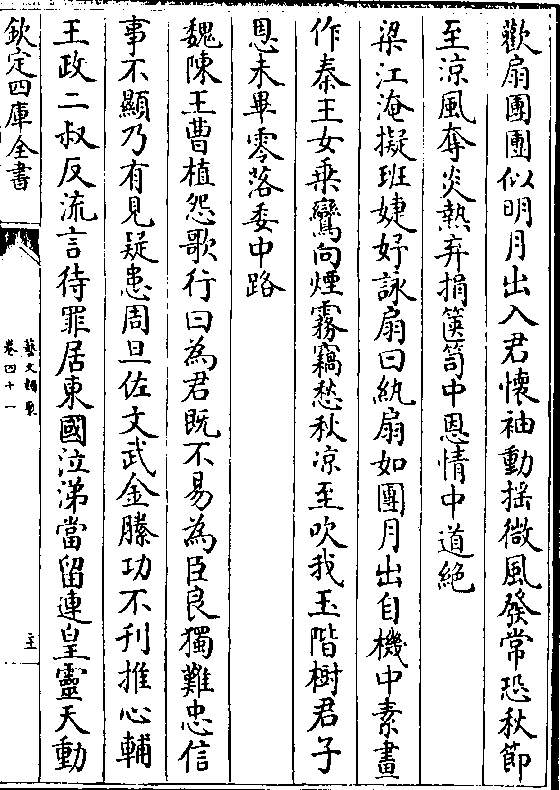 歡扇團團似明月出入君懷袖動揺微風發常恐秋節
至涼風奪炎熱弃捐篋笥中恩情中道絶
梁江淹擬班婕妤詠扇曰紈扇如團月出自機中素畫
作秦王女乗鸞向煙霧竊愁秋凉至吹我玉階樹君子
恩未畢零落委中路
魏陳王曹植怨歌行曰為君既不易為臣良獨難忠信
事不顯乃有見疑患周旦佐文武金縢功不刋推心輔
王政二叔反流言待罪居東國泣涕當留連皇靈天動
欽定四庫全書
藝文類聚
卷四十一